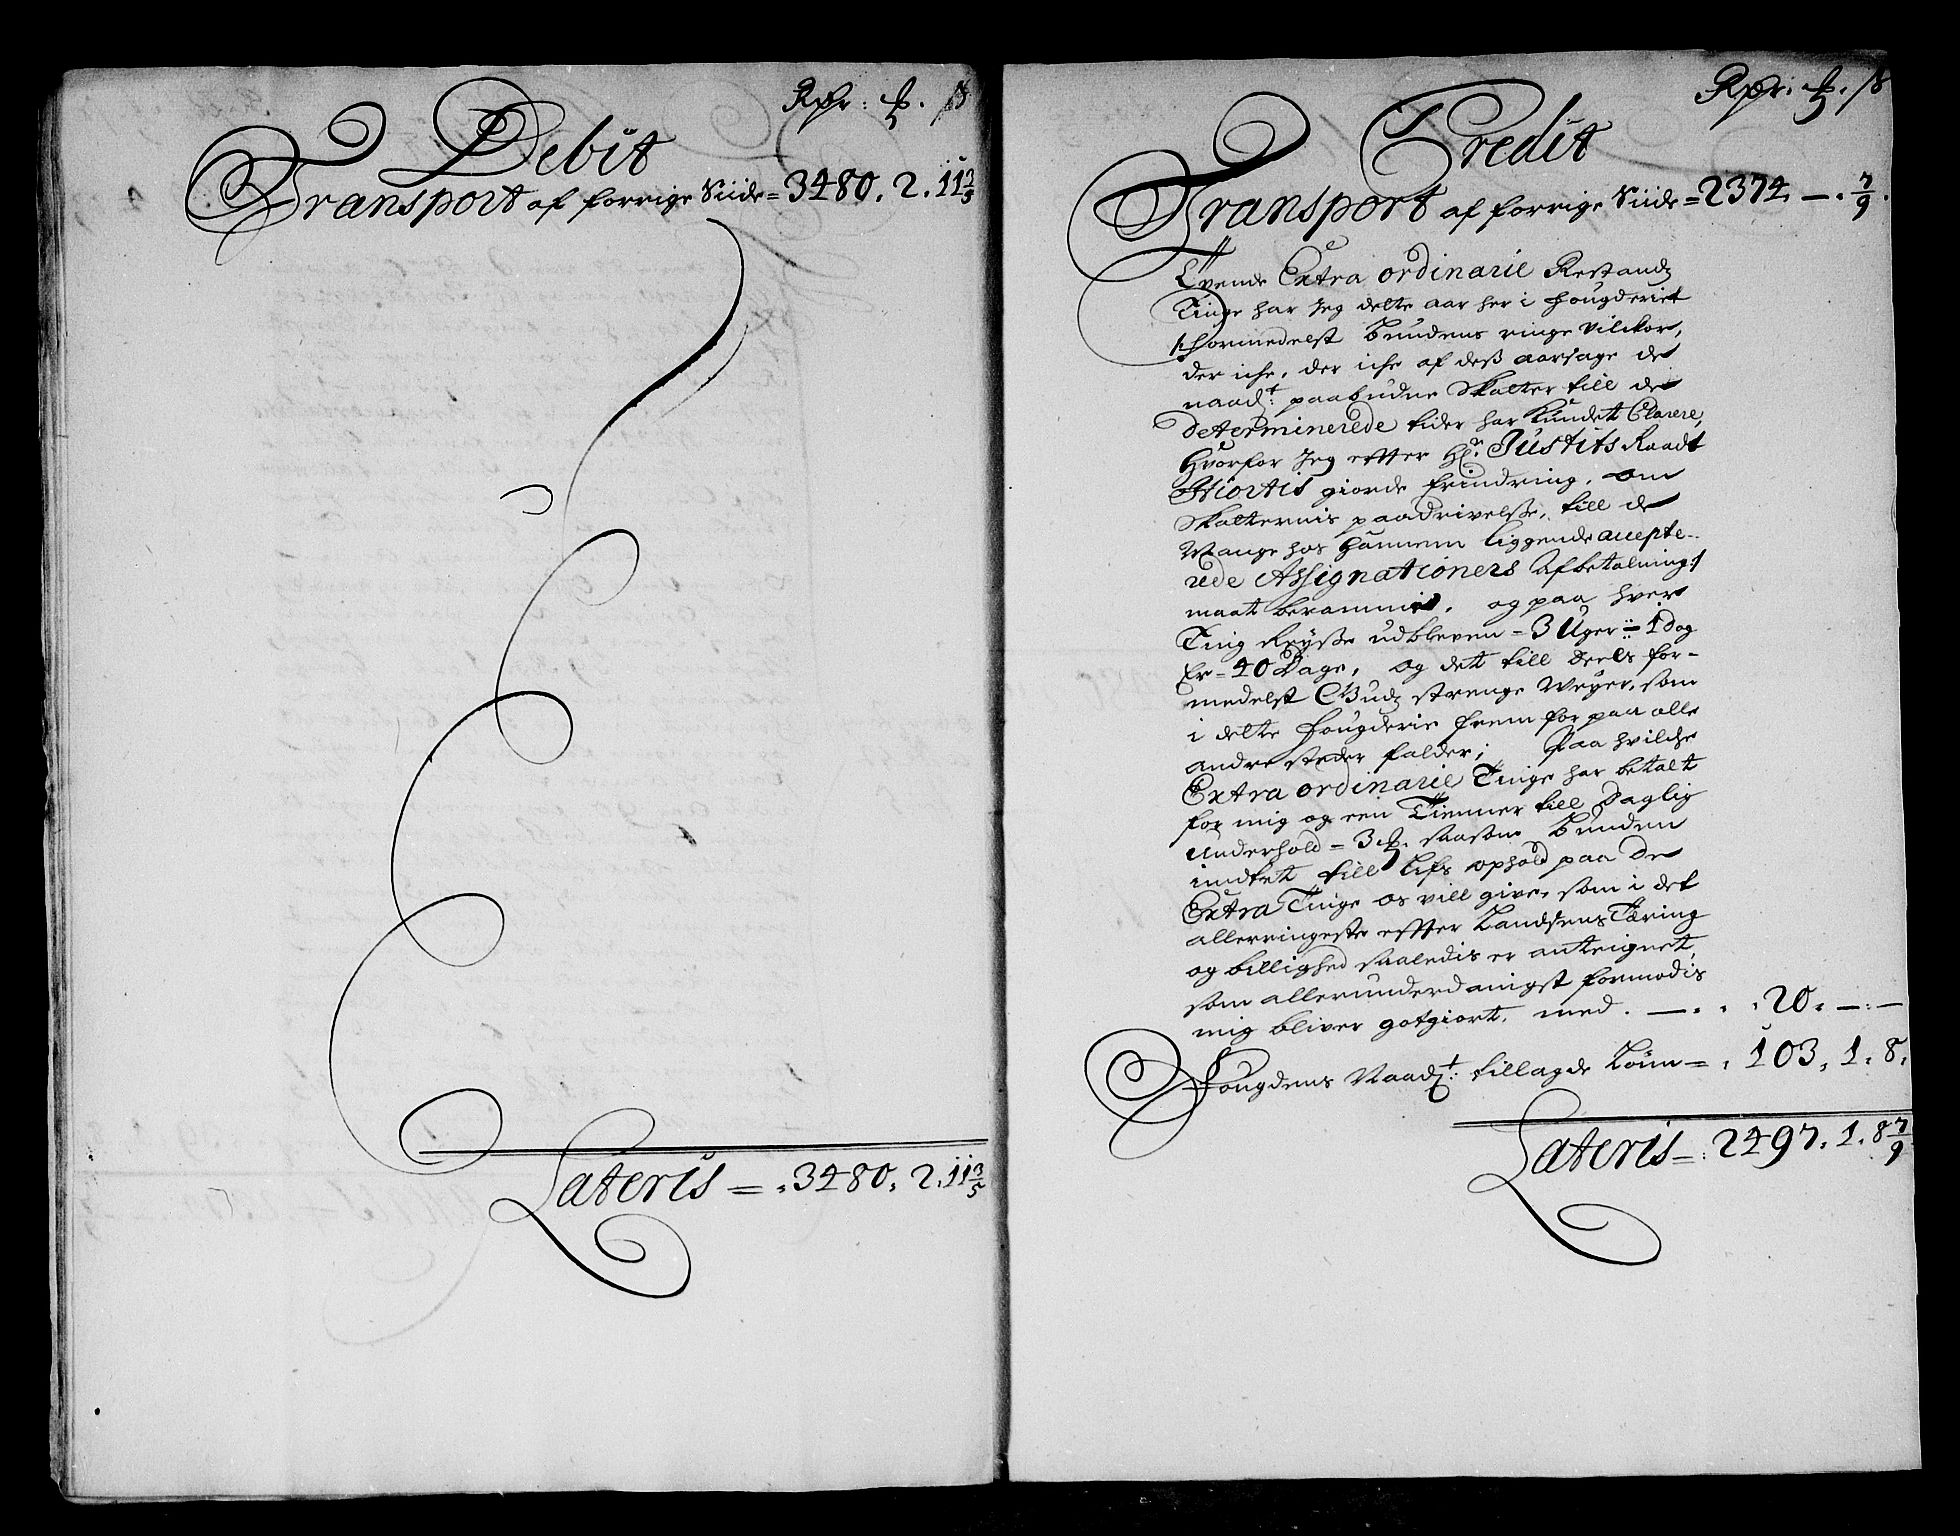 Debit
Rdr: ß
Transport af forrige Siide = 3480. 2. 11 3/5
Lateris = . 3480. 2. 11 3/5
Credit
Rdr: ß
Transport af forrige Siide = 2374 — . 7/9.
Tvende Extra ordinarie Restandz
Tinge har Jeg dette aar her i Fougderiet
formedelst Bundens ringe vilckor,
der iche, der iche af deß aarsage de
naadt: paabudne Skatter till de
determinerede tider har kundet Clarere,
Hvorfor Jeg effter Hr: Justits Raadt
Hiortis giorde Erindring, om
Skatternis paadrivelße, till de
Mange hos hannem liggende accepte-
rede Assignationers Afbetalning:/
maat berammit, og paa hver
Ting Reyße udbleven = 3 Uger = 1 dog
Er = 40 Dage, og det till deels for-
medelst Gudz strenge Veyer, som
i dette Fougderie frem for paa alle
andre steder falder; Paa hvilche
Extra ordinarie Tinge har betalt
for mig og een Tienner till daglig
underhold = 3 saasom Bunden
indtet till lifs ophold paa De
Extra Tinge os vill give, som i det
allerringeste effter Landsens Tæring
og billighed saaledis er anteignet,
som allerunderdanigst formodis
mig bliver gotgiort, med. — . . . 20. — : —
Fougdens Naadt: tillagde Lönn = . 103. 1. 8.
Lateris = : 2497. 1. 8 7/9